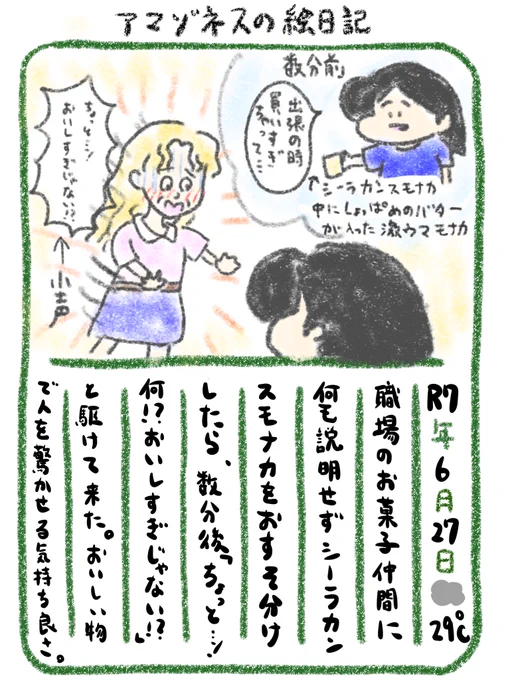 アマゾネスの絵日記
数分前
出張の時
買いすぎ
ちゃって…
↑シーラカンスモナカ
中にしょっぱめのバター
が入った激ウマモナカ
ちょっと…!
おいしすぎじゃない!?
↑小声
R7年6月27日 29℃
職場のお菓子仲間に
何も説明せずシーラカン
スモナカをおすそ分け
したら、数分後「ちょっと…!
何!?おいしすぎじゃない!?」
と駆けて来た。おいしい物
で人を驚かせる気持ち良さ。